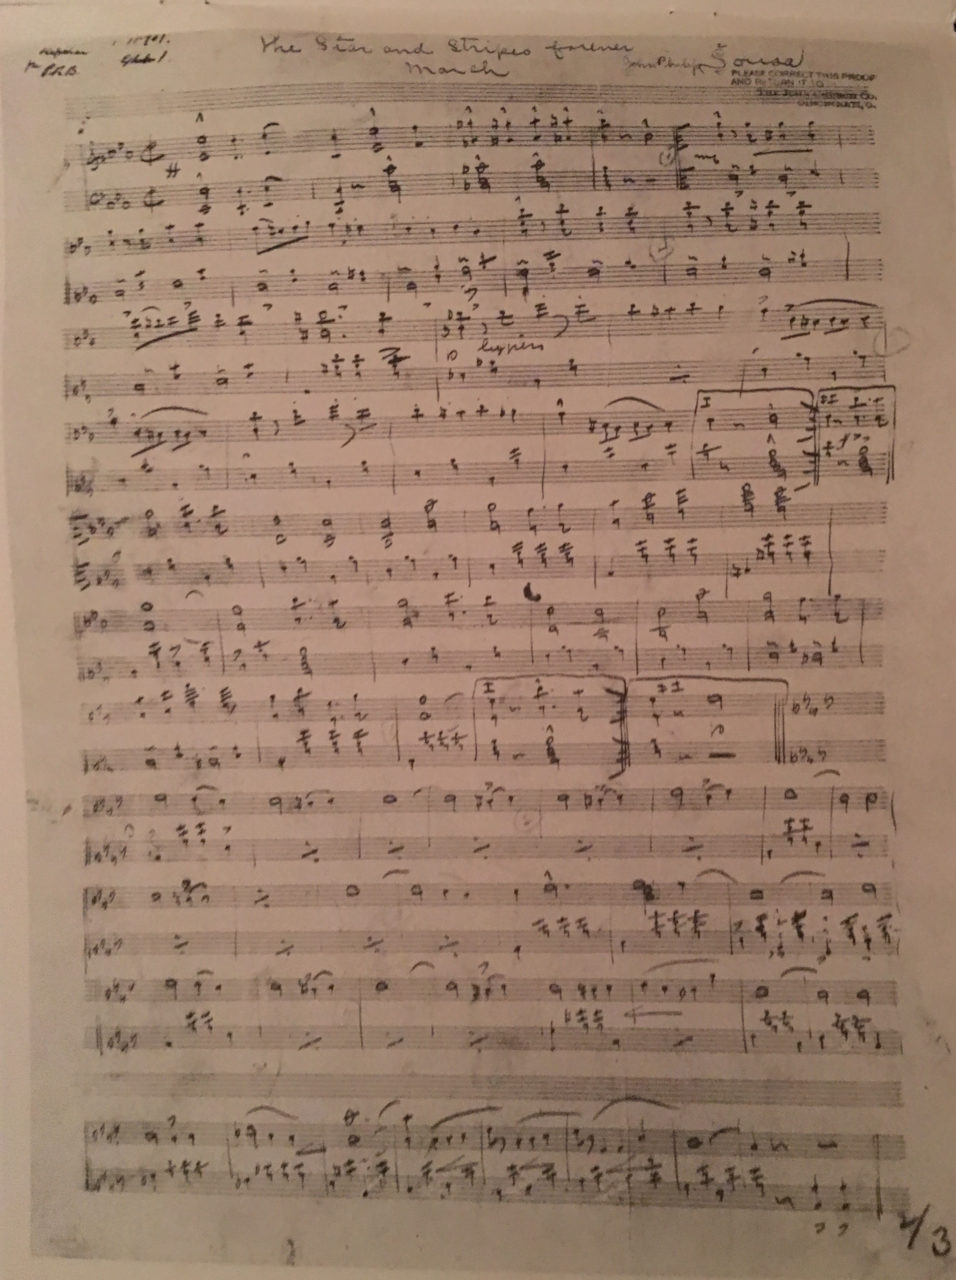 The Star and Stripes forever
March
John Philip Sousa
PLEASE CORRECT THIS PROOF
AND RETURN IT TO
The John Church Co.
CINCINNATI, O.
P.R.B.
I
II
I
II
2/3